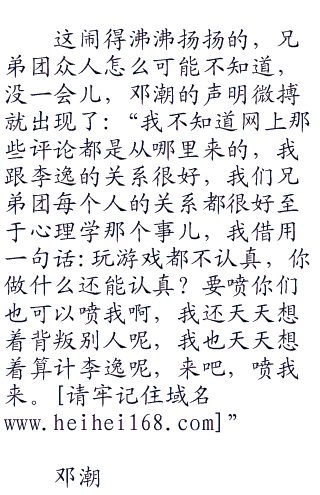 这闹得沸沸扬扬的，兄
弟团众人怎么可能不知道，
没一会儿，邓潮的声明微搏
就出现了：“我不知道网上那
些评论都是从哪里来的，我
跟李逸的关系很好，我们兄
弟团每个人的关系都很好至
于心理学那个事儿，我借用
一句话：玩游戏都不认真，你
做什么还能认真？要喷你们
也可以喷我啊，我还天天想
着背叛别人呢，我也天天想
着算计李逸呢，来吧，喷我
来。[请牢记住域名
www.heihei168.com]”
邓潮